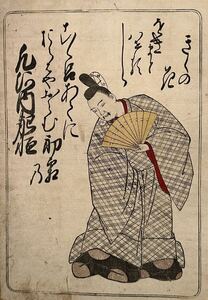 凡河内躬恒
こゝろあてに
おらはやおらむ初霜乃
をきまとはせるしら
きくの花